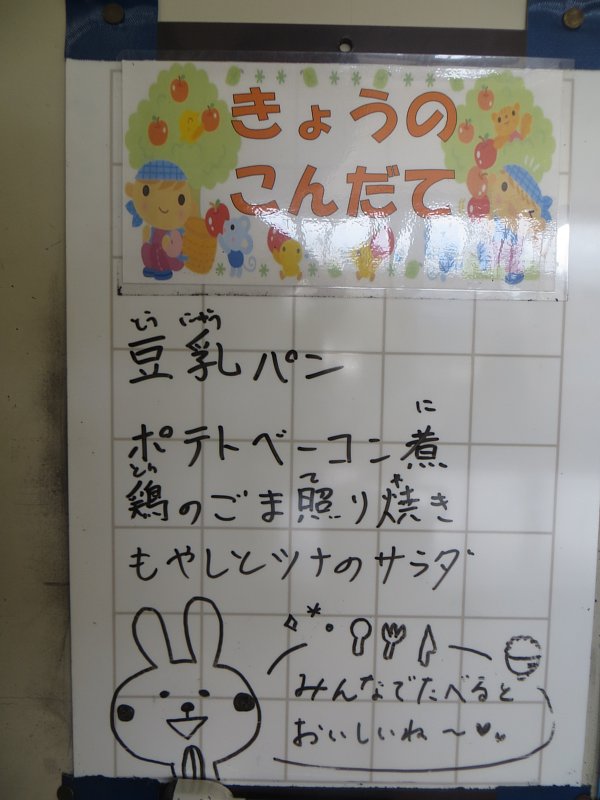 きょうの
こんだて
とう にゅう
豆乳パン
に
ポテトベーコン煮
とり て や
鶏のごま照り焼き
もやしとツナのサラダ
みんなでたべると
おいしいね〜♥